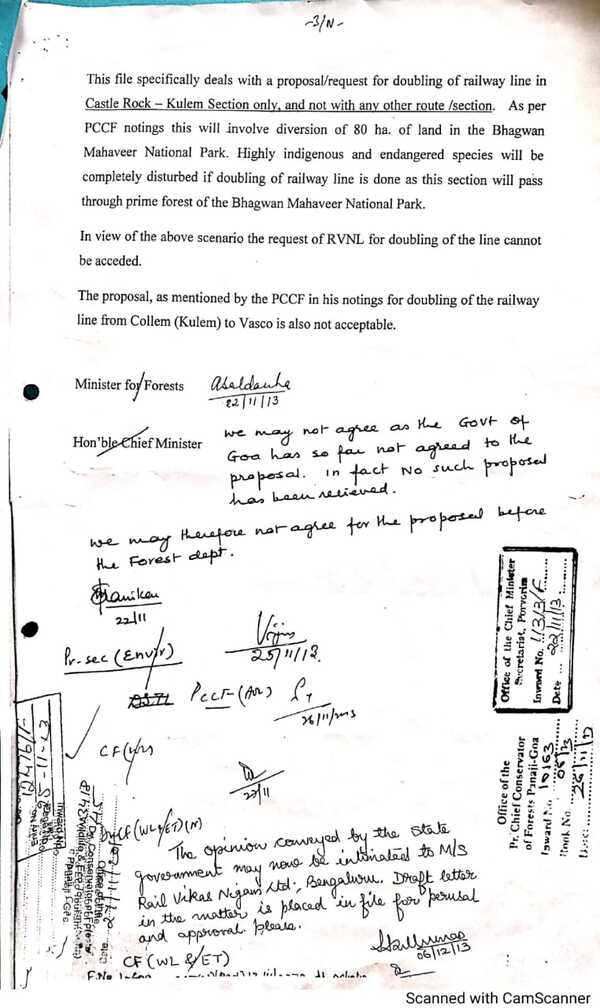 -3/N-
This file specifically deals with a proposal/request for doubling of railway line in
Castle Rock – Kulem Section only, and not with any other route /section. As per
PCCF notings this will involve diversion of 80 ha. of land in the Bhagwan
Mahaveer National Park. Highly indigenous and endangered species will be
completely disturbed if doubling of railway line is done as this section will pass
through prime forest of the Bhagwan Mahaveer National Park.
In view of the above scenario the request of RVNL for doubling of the line cannot
be acceded.
The proposal, as mentioned by the PCCF in his notings for doubling of the railway
line from Collem (Kulem) to Vasco is also not acceptable.
Minister for Forests
22/11/13
Hon'ble Chief Minister
we may not agree as the Govt of
Goa has so far not agreed to the
proposal. In fact No such proposal
has been recieved.
we may therefore not agree for the proposal before
the Forest dept.
22/11
Pr. sec (Envir)
25/11/13.
PCCF
26/11/2013
CF
Office of the Chief Minister
Secretariat, Porvorim
Inward No. 113/3/F
Date ... 22/11/13
Office of the
Pr. Chief Conservator
of Forests Panaji-Goa
Inward No. 10163
Book No. 06/13
26/11/13
DyCF (WL & ET) (N)
The opinion conveyed by the State
government may now be intimated to M/S
Rail Vikas Nigam Ltd., Bengaluru. Draft letter
in the matter is placed in file for perusal
and approval please.
06/12/13
CF (WL & ET)
Scanned with CamScanner